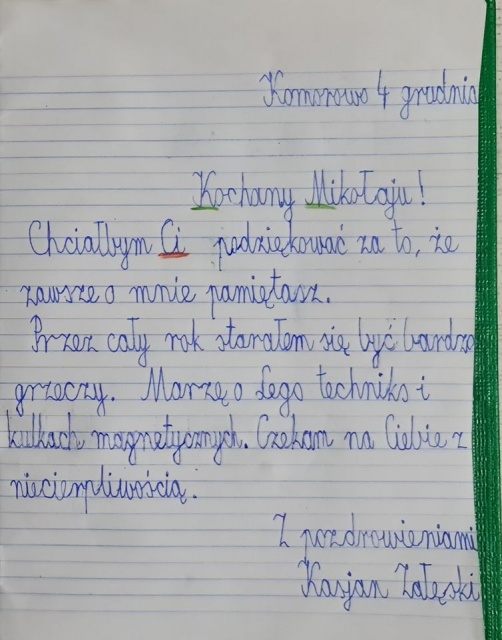 Komorowo 4 grudnia
Kochany Mikołaju!
Chciałbym Ci podziękować za to, że
zawsze o mnie pamiętasz.
Przez cały rok starałem się być bardzo
grzeczy. Marzę o Lego techniks i
kulkach magnetycznych. Czekam na Ciebie z
niecierpliwością.
Z pozdrowieniami
Kasjan Załęski